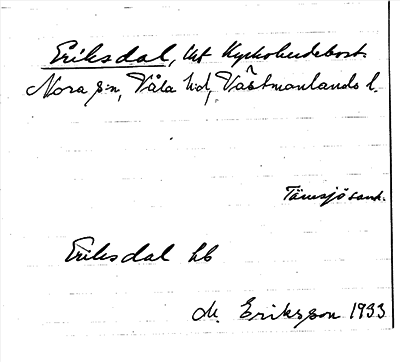 Eriksdal, tht Kyrkoherdebost.
Nora s:n, Våla hd, Västmanlands l.
Tämsjö sank.
Eriksdal hb
M. Eriksson 1933